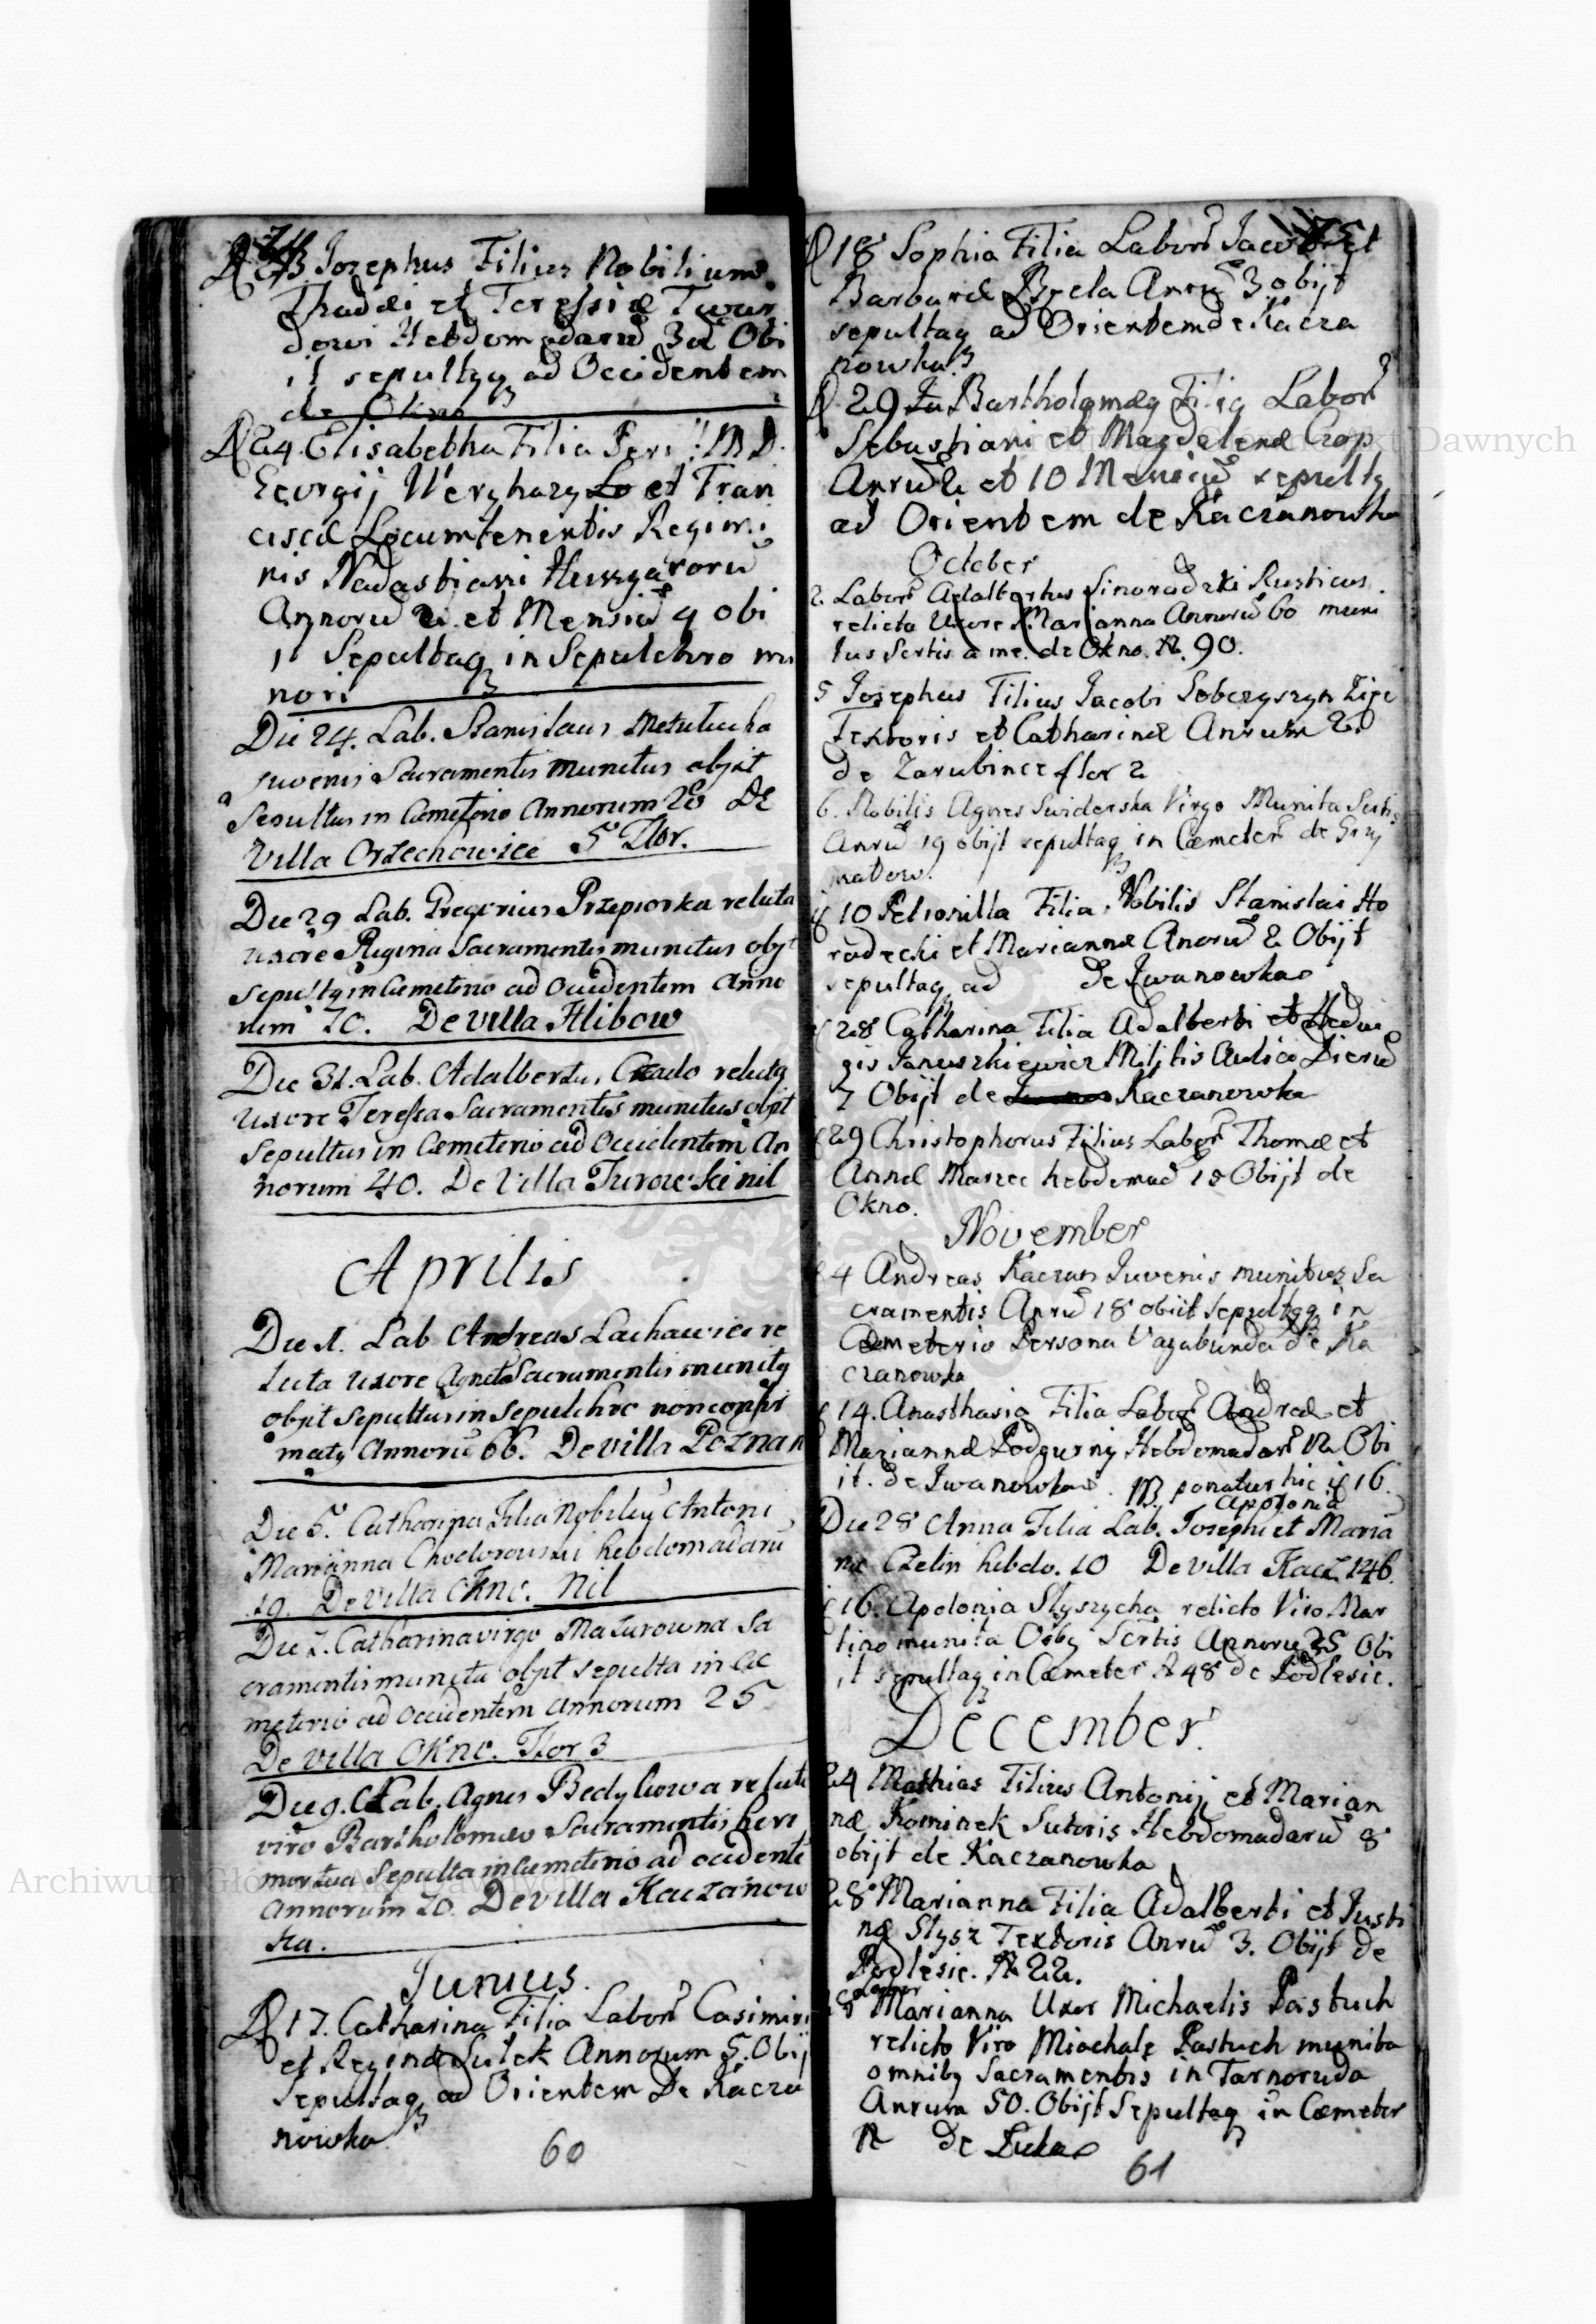 Josephus Filius Nobilium
Thadæi et Teressiæ Twar
dowi Hebdomadarū 3 Obi
it sepultaq ad Occidentem
de Okno
24 Elisabetha Filia D.
Georgij et Fran
ciscæ Locumtenentis Regimi
nis Nadastiani Huszaroru
Annorū et Mensiū 4 obi
it Sepultaq in Sepulchro mi
nori
Die 24. Lab. Stanislaus
juvenis Sacramentis munitus objit
Sepultus in Cœmeterio Annorum 20 De
Villa Orzechowice 5 Flor.
Die 29 Lab. Gregorius Przepiorka relicta
uxore Regina Sacramentis munitus objt
sepultq in Cemeterio ad Occidentem Anno
rum 70. De villa Hlibow
Die 31. Lab. Adalbertus Czado relicta
uxore Teressa Sacramentis munitus objit
Sepultus in Cœmeterio ad Occidentem An
norum 40. De Villa nil
Aprilis
Die 1. Lab. Andreas Lachawiec re
licta uxore Agneta Sacramentis munitq
objit Sepultus in Sepulchro non
Annorū 66. De villa Poznan
Die 5. Catharina Filia Nobiliū Antoni
Marianna Chodorowski hebdomadarū
19. De Villa Okno. Nil
Die 7. Catharina virgo Mazurowna Sa
cramentis munita objit sepulta in Cæ
meterio ad Occidentem Annorum 25
De villa Okno. Flor 3
Die 9. Lab. Agnes relicto
viro Bartholomeo Sacramentis
mortua Sepulta in Cemeterio ad occidente
Annorum 70. De villa Kaczanow
ka.
Junius.
17. Catharina Filia Labor Casimiri
et Reginæ Sulek Annorum 5. Obij
Sepultaq ad Orientem De Kacza
nowka
60
18 Sophia Filia Labor Jacobi Et
Barbaræ Anrū 3 obijt
sepultaq ad Orientem de Kacza
nowka
29 Bartholomæq Filiq Labor
Sebastiani et Magdelenæ Czop
Anrū 2 et 10 Mensiū sepultq
ad Orientem de Kaczanowka
October
2. Labor Adalbertus Sinoradzki Rusticus
relicta Uxore Marianna Annorū 60 muni
tus Sctis a me. de Okno. N. 90.
5 Josephus Filius Jacobi Sobczyszyn
Textoris et Catharinæ Anrum 2.
de Zarubince flor 2
6. Nobilis Agnes Swiderska Virgo Munita Sctis
Anrū 19 obijt sepultaq in Cæmeter de Grzy
matow.
10 Petronilla Filia Nobilis Stanislai Ho
rodecki et Mariannæ Anorū 2 Obijt
sepultaq ad de Iwanowka
28 Catharina Filia Adalberti et Hedwi
gis Januszkiewicz Militis Aulico Dierū
7 Obijt de Kaczanowka
29 Christophorus Filius Labor Thomæ et
Annæ hebdomad 15 Obijt de
Okno.
November
4 Andreas Kaczan Juvenis munitus Sa
cramentis Anrū 18 obiit Sepultaq in
Cæmeterio Persona Vagabunda de Ka
czanowka
14. Anasthasia Filia Labor Andreæ et
Mariannæ Podgurny Hebdomadar 12 Obi
it. de Iwanowka. NB ponatur hic 16.
Appolonia
Die 28 Anna Filia Lab. Josephi et Maria
næ Czelin hebdo. 10 De villa Kacz. 146.
16. Apolonia Slyszycha relicto Viro Mar
tino munita Oibq Sctis Annorū 35 Obi
it sepultaq in Cæmeter N 48 de Podlesie.
December
24 Mathias Filius Antonij et Marian
næ Kominek Sutoris Hebdomadarū 8
obijt de Kaczanowka
28 Marianna Filia Adalberti et Justi
næ Slysz Textoris Anrū 3. Obijt de
Podlesie. N 22.
Marianna Uxor Michaelis Pastuch
relicto Viro Miachale Pastuch munita
omnibq Sacramentis in Tarnoruda
Anrum 50. Obijt Sepultaq in Cæmeter
N de Luka
61
Archiwum Główne Akt Dawnych